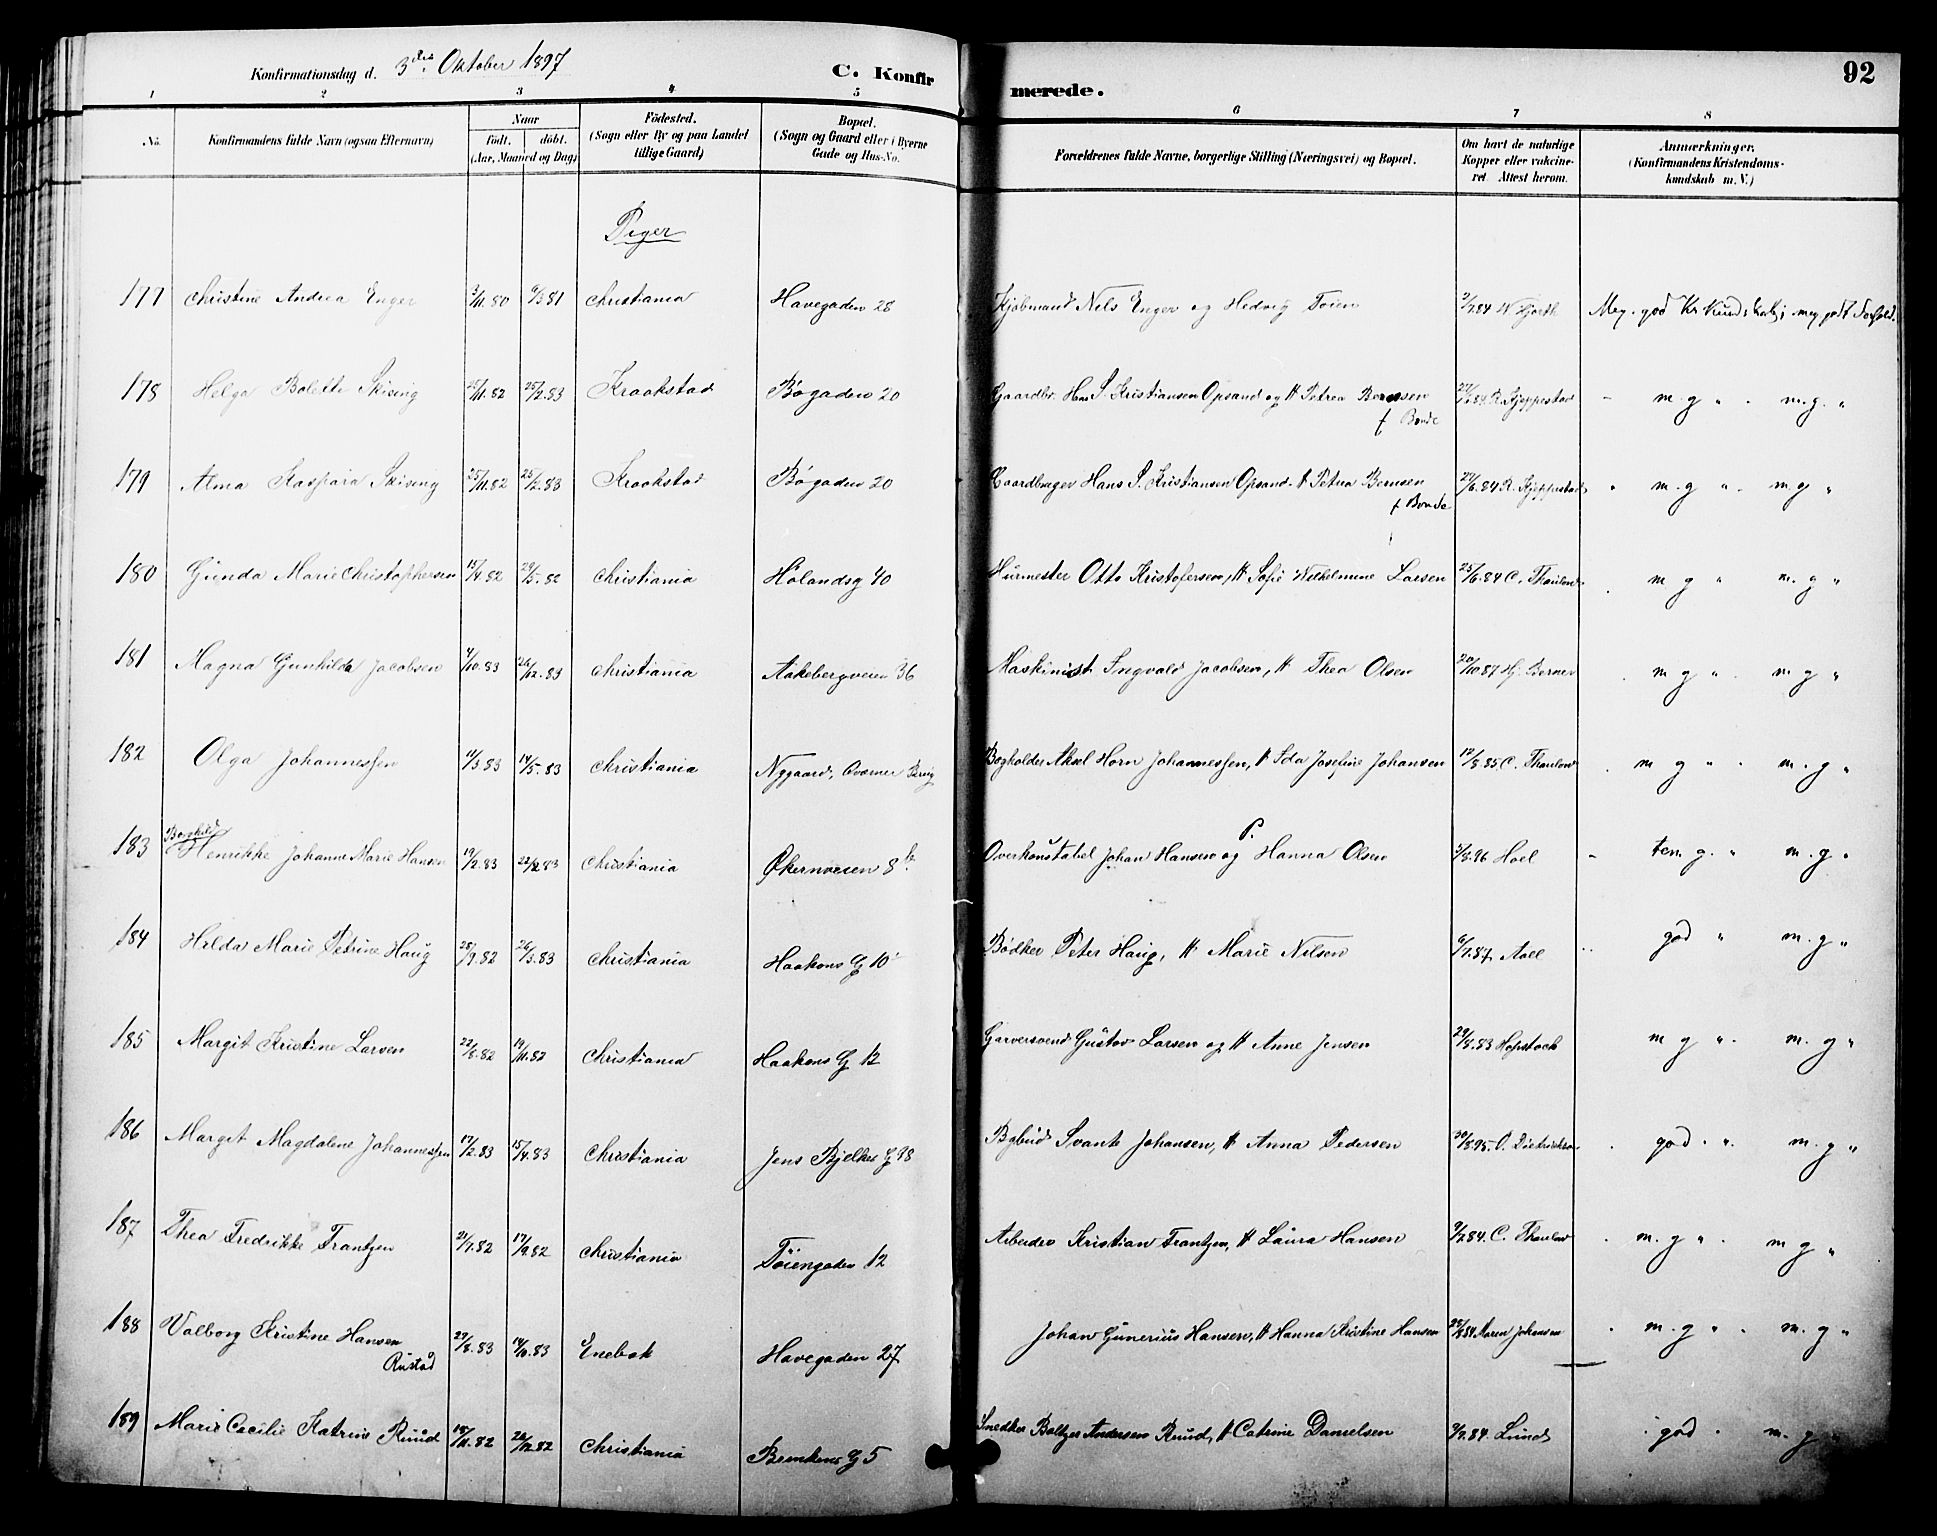 Konfirmationsdag d. 3die Oktober 1897 C. Konfir merede. 92
1 2 3 4 5 6 7 8
No. Konfirmandens fulde Navn (ogsaa Efternavn) Naar födt. döbt. (Aar, Maaned og Dag) Födested. (Sogn eller By og paa Landet tillige Gaard) Bopæl. (Sogn og Gaard eller i Byerne Gade og Hus-No. Forældrenes fulde Navne, borgerlige Stilling (Næringsvei) og Bopæl. Om havt de naturlige Kopper eller vakcineret. Attest herom. Anmærkninger. (Konfirmandens Kristendomskundskab m. V.)
Piger
177 Christine Andrea Enger 3/11.80 6/3 81 Christiania Havegaden 28 Kjøbmand Nils Enger og Hedvig Toien 2/7.84 Hjorth Meg. god Kr Kundskab; meg. godt Forhold.
178 Helga Bolette Skising 25/11.82 25/2.83 Kraakstad Bøgaden 20 Gaardbr. Hans S. Kristiansen Opsand og H Petrea Bernsen f Bonde 27/6.84 R. Kjeppestad - m. g " . m. g. "
179 Alma Kaspara Skising 25/11.82 25/2.83 Kraakstad Bøgaden 20 Gaardbruger Hans S. Kristiansen Opsand. H Petrea Bernsen f Bonde 27/6.84 R. Kjeppestad " m. g " . m. g "
180 Gunda Marie Christophersen 15/4.82 29/5.82 Christiania Hølandsg 40 Murmester Otto Kristofersen, H Sofie Wilhelmine Larsen 25/6.84 C. Thaulow . m g " m. g "
181 Magna Gunhilda Jacobsen 4/10.83 26/12.83 Christiania Aakebergveien 36 Maskinist Ingvald Jacobsen, H Thea Olsen 20/10 87 Hj. Berner . m g " . m g "
182 Olga Johannessen 11/3 83 14/5.83 Christiania Nygaard, Bogholder Aksel Horn Johannessen, H Ida Josefine Johansen 12/8.85 C. Thaulow . m g " . m. g "
183 Borghild Henrikke Johanne Marie Hansen 19/2.83 22/2 83 Christiania Økernveien 8 b. Overkonstabel Johan Hansen og P. Hanna Olsen 3/8.96 Hoel - tem g. " m. g "
184 Hilda Marie Petrine Haug 28/9.82 26/3.83 Christiania Haakons G 10 Bødker Peter Haug, H Marie Nilsen 6/7.87 Aall .. god " m. g "
185 Margit Kristine Larsen 22/8.82 19/11.82 Christiania Haakons G 12 Garversvend Gustav Larsen og H Anne Jensen 29/8.83 Hopstock m g " . m. g "
186 Margit Magdalene Johannessen 17/2.83 15/4.83 Christiania Jens Bjelkes G 98 Bybud Svante Johansen, H Anna Pedersen 30/8.95. O. Dietrichson . god . ". m. g "
187 Thea Fredrikke Frantzen 21/7.82 17/9.82 Christiania Töiengaden 12 Arbeider Kristian Frantzen, H Laura Hansen 9/7.84. C. Thaulow . m. g " . m g "
188 Valborg Kristine Hansen Rustad 29/8.83 14/10.83 Enebak Havegaden 27 Johan Gunerius Hansen, H Hanna Kristine Hansen 28/8 84 Maren Johansen . m. g " . m. g "
189 Marie Cecilie Katrine Ruud 18/11.82 26/12.82 Christiania G 5 Snedker Baltzer Andersen Ruud, H Catrine Danielsen 9/7.84. Lund . god . m. g "